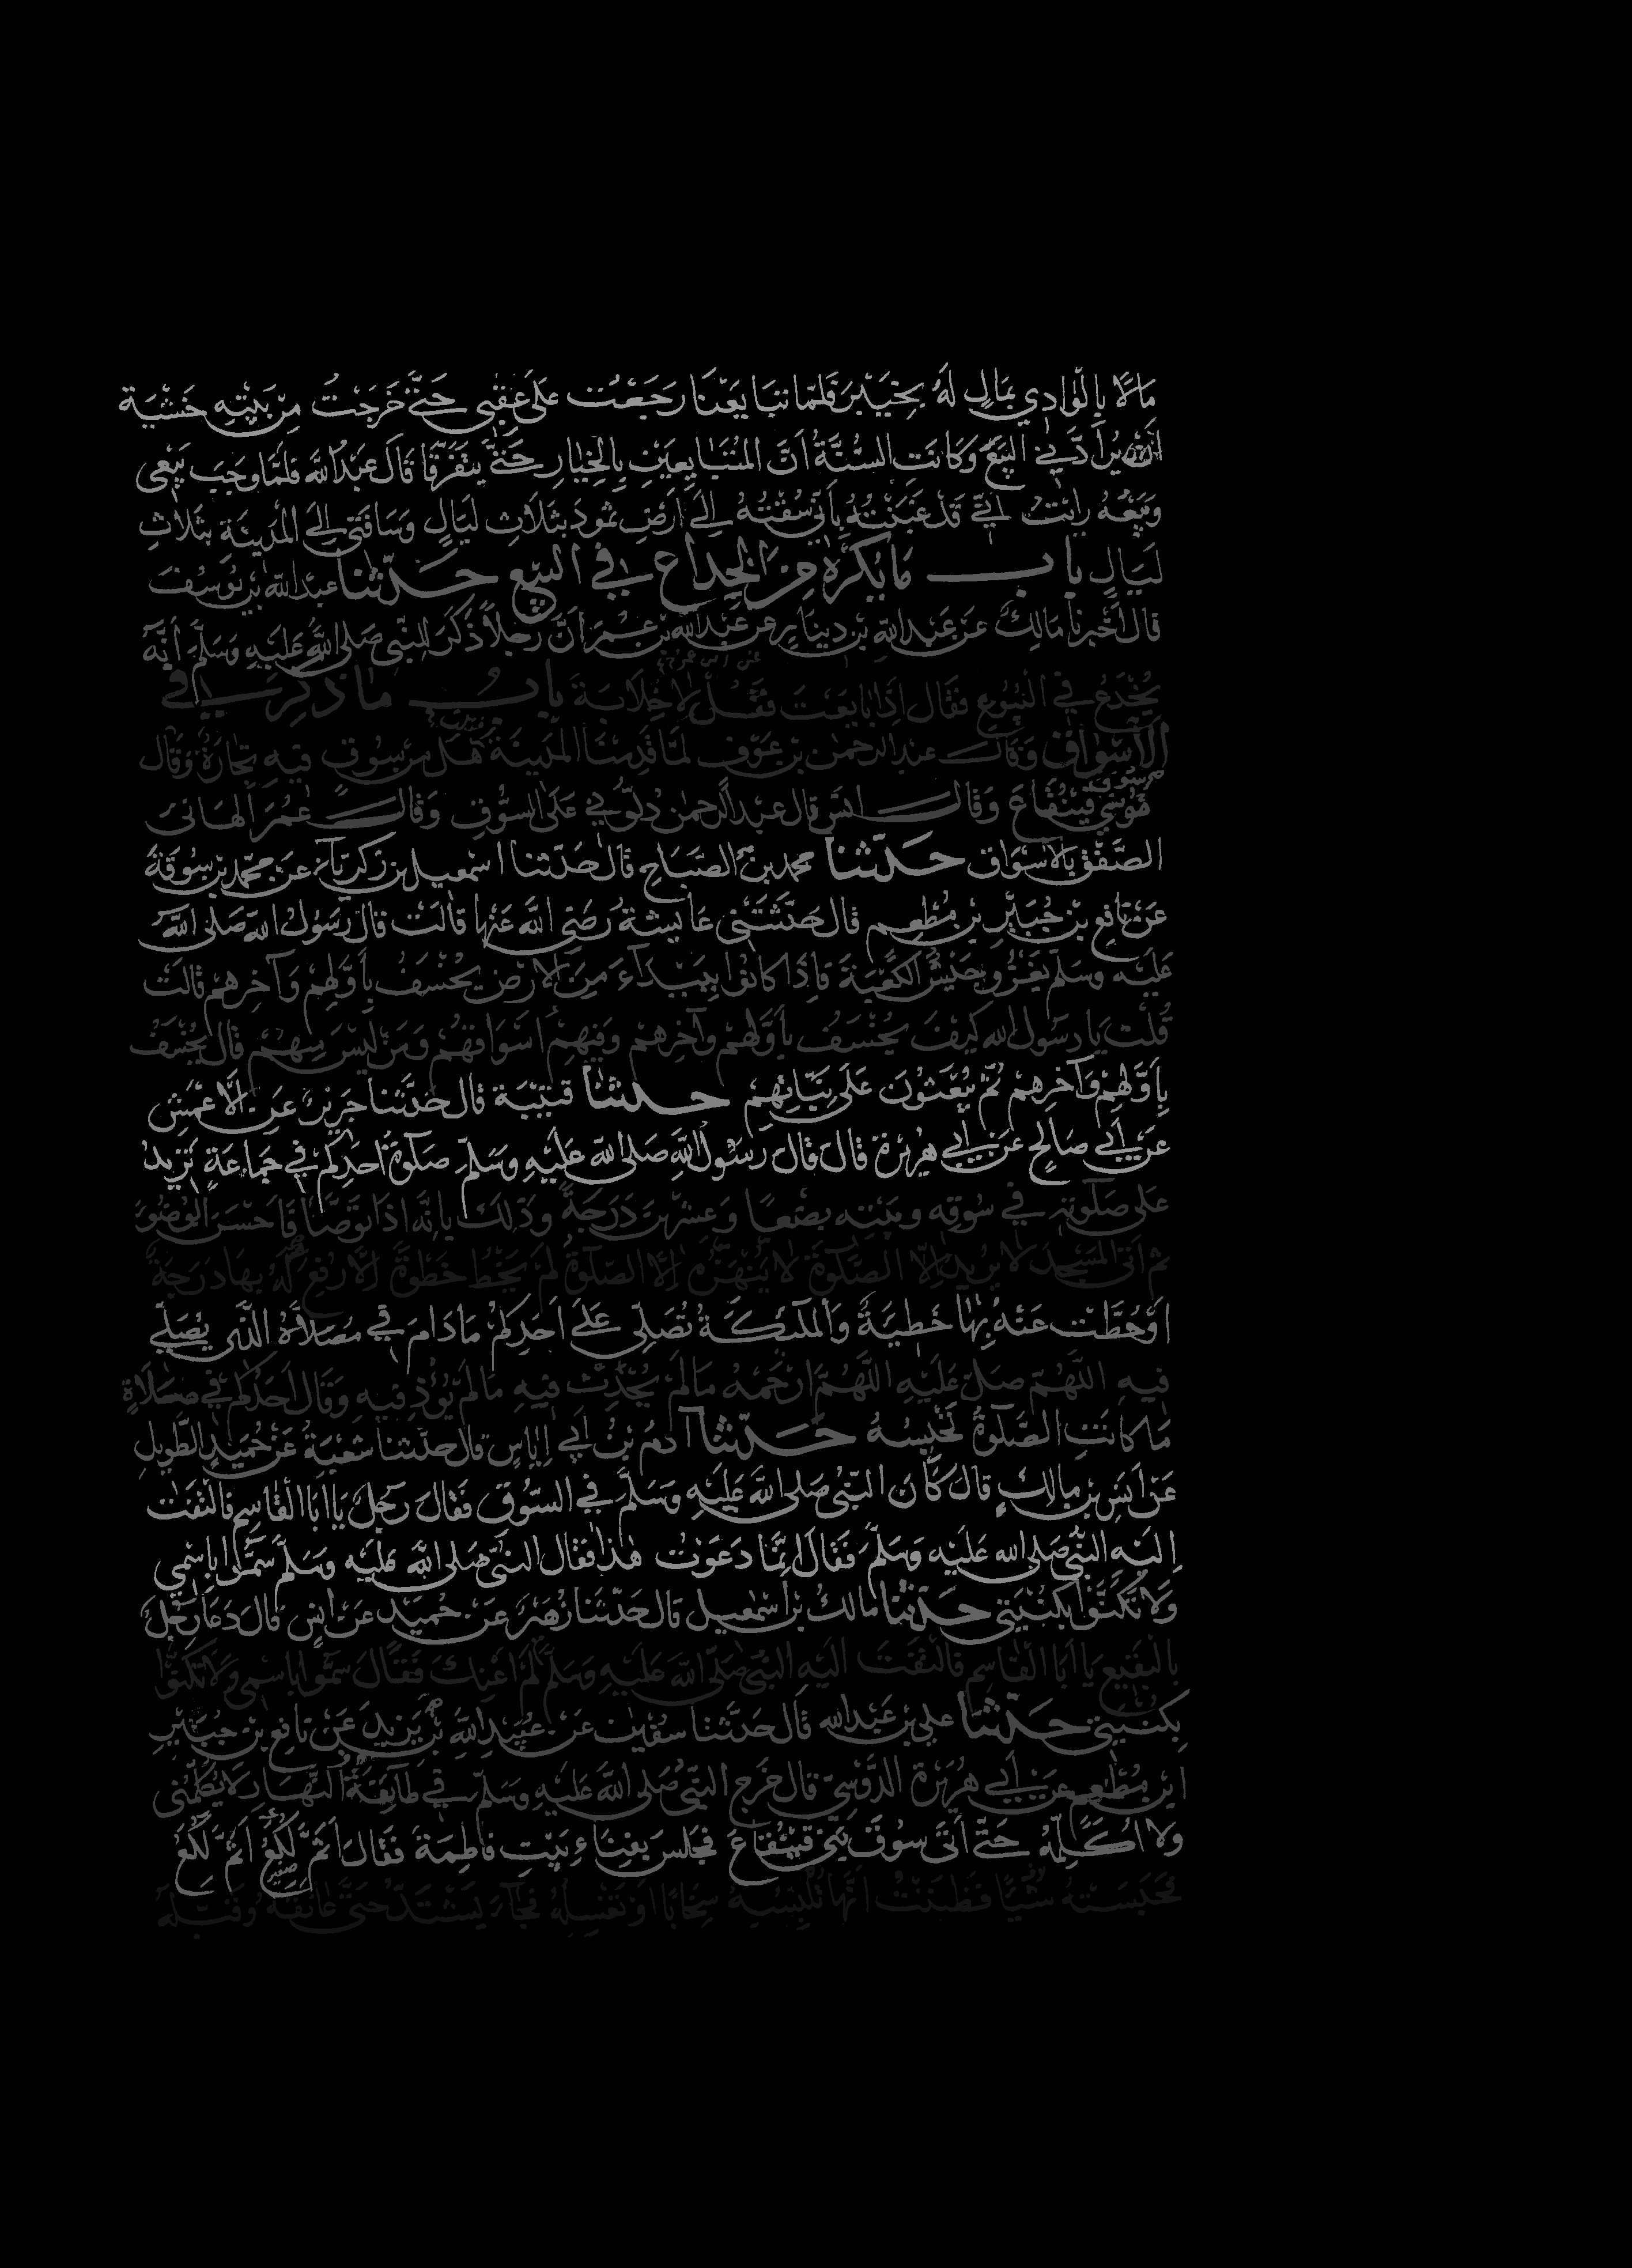 مَالًا بِالْوَادِي بِمَالٍ لَهُ بِخَيْبَرَ فَلَمَّا تَبَايَعْنَا رَجَعْتُ عَلَى عَقِبَيَّ حَتَّى خَرَجْتُ مِنْ بَيْتِهِ خَشْيَةَ
اَنْ يُرَادَّنِي الْبَيْعَ وَكَانَت السُّنَّةُ اَنَّ الْمُتَبَايِعَيْنِ بِالْخِيَارِ حَتَّى يَتَفَرَّقَا قَالَ عَبْدُ اللَّهِ فَلَمَّا وَجَبَ بَيْعِي
وَبَيْعُهُ رَاَيْتُ اَنِّي قَدْ غَبَنْتُهُ بِاَنِّي سُقْتُهُ اِلَى اَرْضِ ثَمُودَ بِثَلَاثِ لَيَالٍ وَسَاقَنِي اِلَى الْمَدِينَةِ بِثَلَاثِ
لَيَالٍ بَاب مَا يُكْرَهُ مِنَ الْخِدَاعِ فِي الْبَيْعِ حَدَّثَنَا عَبْدُ اللَّهِ بْنُ يُوسُفَ
قَالَ اَخْبَرَنَا مَالِكٌ عَنْ عَبْدِ اللَّهِ بْنِ دِينَارٍ عَنْ عَبْدِ اللَّهِ بْنِ عُمَرَ اَنَّ رَجُلاً ذَكَرَ لِلنَّبِيِّ صَلَّى اللَّهُ عَلَيْهِ وَسَلَّمَ اَنَّهُ
يُخْدَعُ فِي الْبُيُوعِ فَقَالَ اِذَا بَايَعْتَ فَقُلْ لَا خِلَابَةَ بَابُ مَا ذُكِرَ فِي
الْاَسْوَاقِ وَقَالَ عَبْدُ الرَّحْمٰنِ بْنُ عَوْفٍ لَمَّا قَدِمْنَا الْمَدِينَةَ هَلْ مِنْ سُوقٍ فِيهِ تِجَارَةٌ وَقَالَ
سُوقُ قَيْنُقَاعَ وَقَالَ اَنَسٌ قَالَ عَبْدُ الرَّحْمٰنِ دُلُّونِي عَلَى السُّوقِ وَقَالَ عُمَرُ اَلْهَانِيَ
الصَّفْقُ بِالْاَسْوَاقِ حَدَّثَنَا مُحَمَّدُ بْنُ الصَّبَّاحِ قَالَ حَدَّثَنَا اِسْمٰعِيلُ بْنُ زَكَرِيَّاءَ عَنْ مُحَمَّدِ بْنِ سُوقَةَ
عَنْ نَافِعِ بْنِ جُبَيْرِ بْنِ مُطْعِمٍ قَالَ حَدَّثَتْنِي عَائِشَةُ رَضِيَ اللَّهُ عَنْهَا قَالَتْ قَالَ رَسُولُ اللَّهِ صَلَّى اللَّهُ
عَلَيْهِ وَسَلَّمَ يَغْزُو جَيْشٌ الْكَعْبَةَ فَاِذَا كَانُوا بِبَيْدَاءَ مِنَ الْاَرْضِ يُخْسَفُ بِاَوَّلِهِمْ وَآخِرِهِمْ قَالَتْ
قُلْتُ يَا رَسُولَ اللَّهِ كَيْفَ يُخْسَفُ بِاَوَّلِهِمْ وَآخِرِهِمْ وَفِيهِمْ اَسْوَاقُهُمْ وَمَنْ لَيْسَ مِنْهُمْ قَالَ يُخْسَفُ
بِاَوَّلِهِمْ وَآخِرِهِمْ ثُمَّ يُبْعَثُونَ عَلَى نِيَّاتِهِمْ حَدَّثَنَا قُتَيْبَةُ قَالَ حَدَّثَنَا جَرِيرٌ عَنِ الْاَعْمَشِ
عَنْ اَبِي صَالِحٍ عَنْ اَبِي هُرَيْرَةَ قَالَ قَالَ رَسُولُ اللَّهِ صَلَّى اللَّهُ عَلَيْهِ وَسَلَّمَ صَلٰوةُ اَحَدِكُمْ فِي جَمَاعَةٍ تَزِيدُ
عَلَى صَلٰوتِهِ فِي سُوقِهِ وَبَيْتِهِ بِضْعًا وَعِشْرِينَ دَرَجَةً وَذٰلِكَ بِاَنَّهُ اِذَا تَوَضَّاَ فَاَحْسَنَ الْوُضُوءَ
ثُمَّ اَتَى الْمَسْجِدَ لَا يُرِيدُ اِلَّا الصَّلٰوةَ لَا يَنْهَزُهُ اِلَّا الصَّلٰوةُ لَمْ يَخْطُ خَطْوَةً اِلَّا رُفِعَ لَهُ بِهَا دَرَجَةٌ
اَوْ حُطَّتْ عَنْهُ بِهَا خَطِيئَةٌ وَالْمَلٰئِكَةُ تُصَلِّي عَلَى اَحَدِكُمْ مَا دَامَ فِي مُصَلَّاهُ الَّذِي يُصَلِّي
فِيهِ اللَّهُمَّ صَلِّ عَلَيْهِ اللَّهُمَّ ارْحَمْهُ مَا لَمْ يُحْدِثْ فِيهِ مَا لَمْ يُؤْذِ فِيهِ وَقَالَ اَحَدُكُمْ فِي صَلَاةٍ
مَا كَانَتِ الصَّلٰوةُ تَحْبِسُهُ حَدَّثَنَا آدَمُ بْنُ اَبِي اِيَاسٍ قَالَ حَدَّثَنَا شُعْبَةُ عَنْ حُمَيْدٍ الطَّوِيلِ
عَنْ اَنَسِ بْنِ مَالِكٍ قَالَ كَانَ النَّبِيُّ صَلَّى اللَّهُ عَلَيْهِ وَسَلَّمَ فِي السُّوقِ فَقَالَ رَجُلٌ يَا اَبَا الْقَاسِمِ فَالْتَفَتَ
اِلَيْهِ النَّبِيُّ صَلَّى اللَّهُ عَلَيْهِ وَسَلَّمَ فَقَالَ اِنَّمَا دَعَوْتُ هٰذَا فَقَالَ النَّبِيُّ صَلَّى اللَّهُ عَلَيْهِ وَسَلَّمَ سَمُّوا بِاسْمِي
وَلَا تَكَنَّوْا بِكُنْيَتِي حَدَّثَنَا مَالِكُ بْنُ اِسْمٰعِيلَ قَالَ حَدَّثَنَا زُهَيْرٌ عَنْ حُمَيْدٍ عَنْ اَنَسٍ قَالَ دَعَا رَجُلٌ
بِالْبَقِيعِ يَا اَبَا الْقَاسِمِ فَالْتَفَتَ اِلَيْهِ النَّبِيُّ صَلَّى اللَّهُ عَلَيْهِ وَسَلَّمَ لَمْ اَعْنِكَ فَقَالَ سَمُّوا بِاسْمِي وَلَا تَكَنَّوْا
بِكُنْيَتِي حَدَّثَنَا عَلِيُّ بْنُ عَبْدِ اللَّهِ قَالَ حَدَّثَنَا سُفْيٰنُ عَنْ عُبَيْدِ اللَّهِ بْنِ يَزِيدَ عَنْ نَافِعِ بْنِ جُبَيْرِ
ابْنِ مُطْعِمٍ عَنْ اَبِي هُرَيْرَةَ الدَّوْسِيِّ قَالَ خَرَجَ النَّبِيُّ صَلَّى اللَّهُ عَلَيْهِ وَسَلَّمَ فِي طَائِفَةِ النَّهَارِ لَا يُكَلِّمُنِي
وَلَا اُكَلِّمُهُ حَتَّى اَتَى سُوقَ بَنِي قَيْنُقَاعَ فَجَلَسَ بِفِنَاءِ بَيْتِ فَاطِمَةَ فَقَالَ اَثَمَّ لُكَعُ اَثَمَّ لُكَعُ
فَحَبَسَتْهُ شَيْئًا فَظَنَنْتُ اَنَّهَا تُلْبِسُهُ سِخَابًا اَوْ تُغَسِّلُهُ فَجَاءَ يَشْتَدُّ حَتَّى عَانَقَهُ وَقَبَّلَهُ